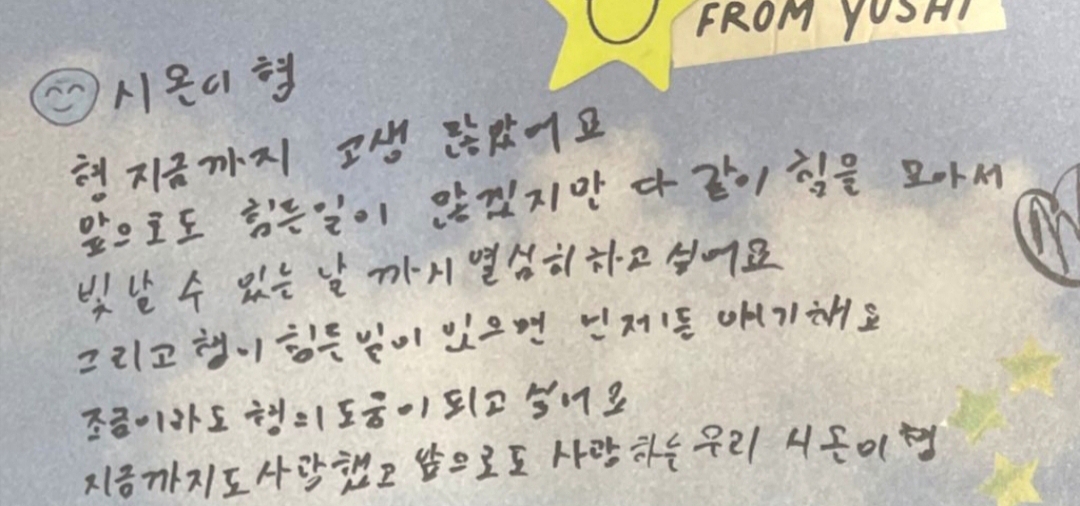 FROM YUSHI
시온이 형
형 지금까지 고생 많았어요
앞으로도 힘든일이 많겠지만 다 같이 힘을 모아서
빛날 수 있는 날 까지 열심히 하고 싶어요
그리고 형이 힘든 일이 있으면 언제든 얘기해요
조금이라도 형의 도움이 되고 싶어요
지금까지도 사랑했고 앞으로도 사랑하는 우리 시온이 형